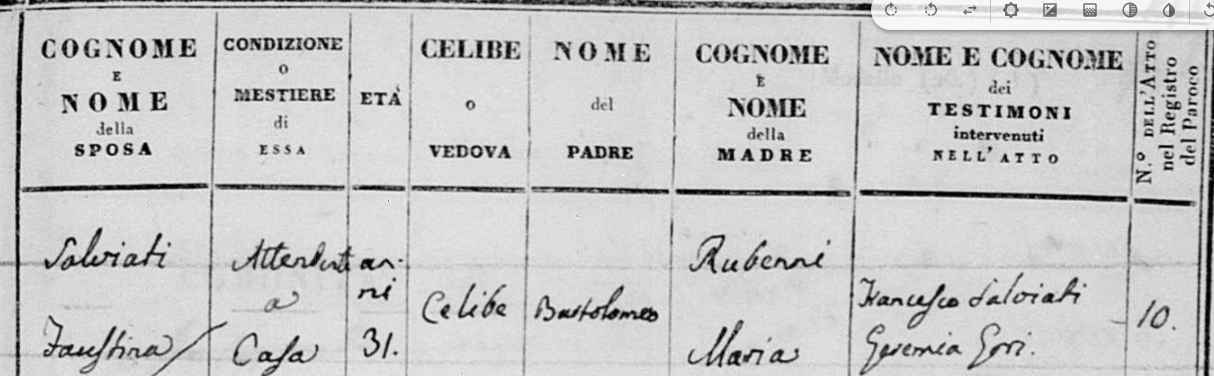 COGNOME
E
NOME
della
SPOSA
CONDIZIONE
O
MESTIERE
di
ESSA
ETÀ
CELIBE
o
VEDOVA
NOME
del
PADRE
COGNOME
E
NOME
della
MADRE
NOME E COGNOME
dei
TESTIMONI
intervenuti
NELL'ATTO
N.º DELL'ATTO
nel Registro
del Paroco
Salviati
Faustina
Attendente
a
Casa
an-
ni
31.
Celibe
Bartolomeo
Rubenni
Maria
Francesco Salviati
Geremia Gori.
10.